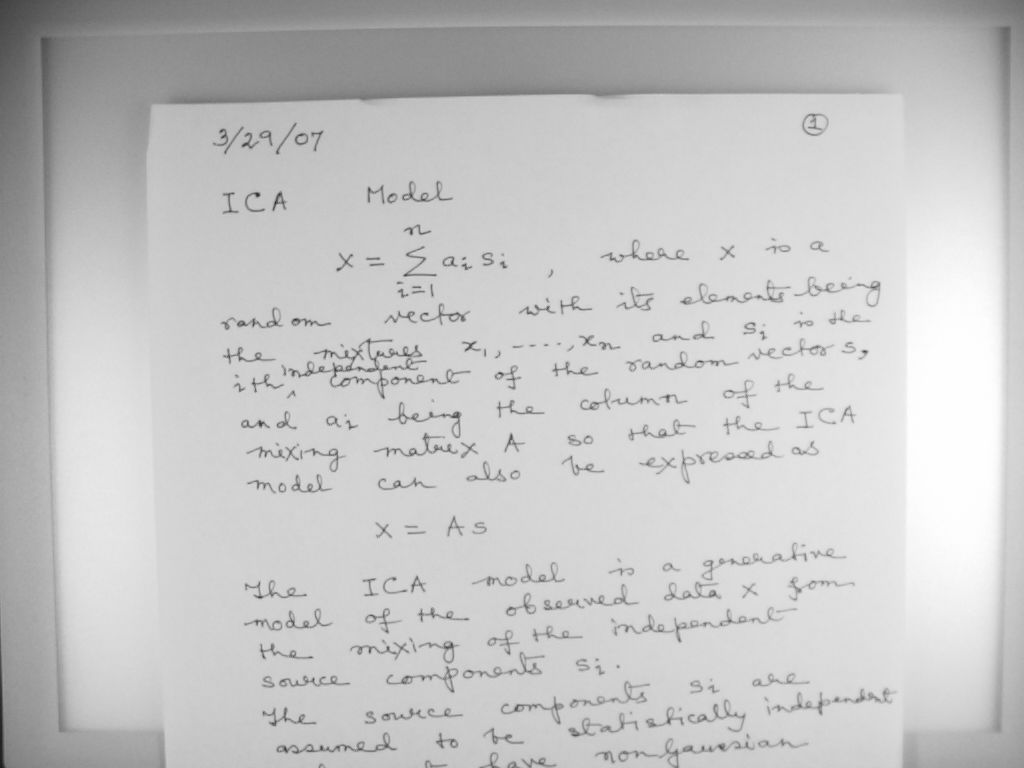 3/29/07 ①
ICA Model
x = n∑i=1 ai si , where x is a
random vector with its elements being
the mixtures x1, ----, xn and si is the
ith ‸ independent component of the random vector s,
and ai being the column of the
mixing matrix A so that the ICA
model can also be expressed as
x = As
The ICA model is a generative
model of the observed data x from
the mixing of the independent
source components si.
The source components si are
assumed to be statistically independent
have nonGaussian